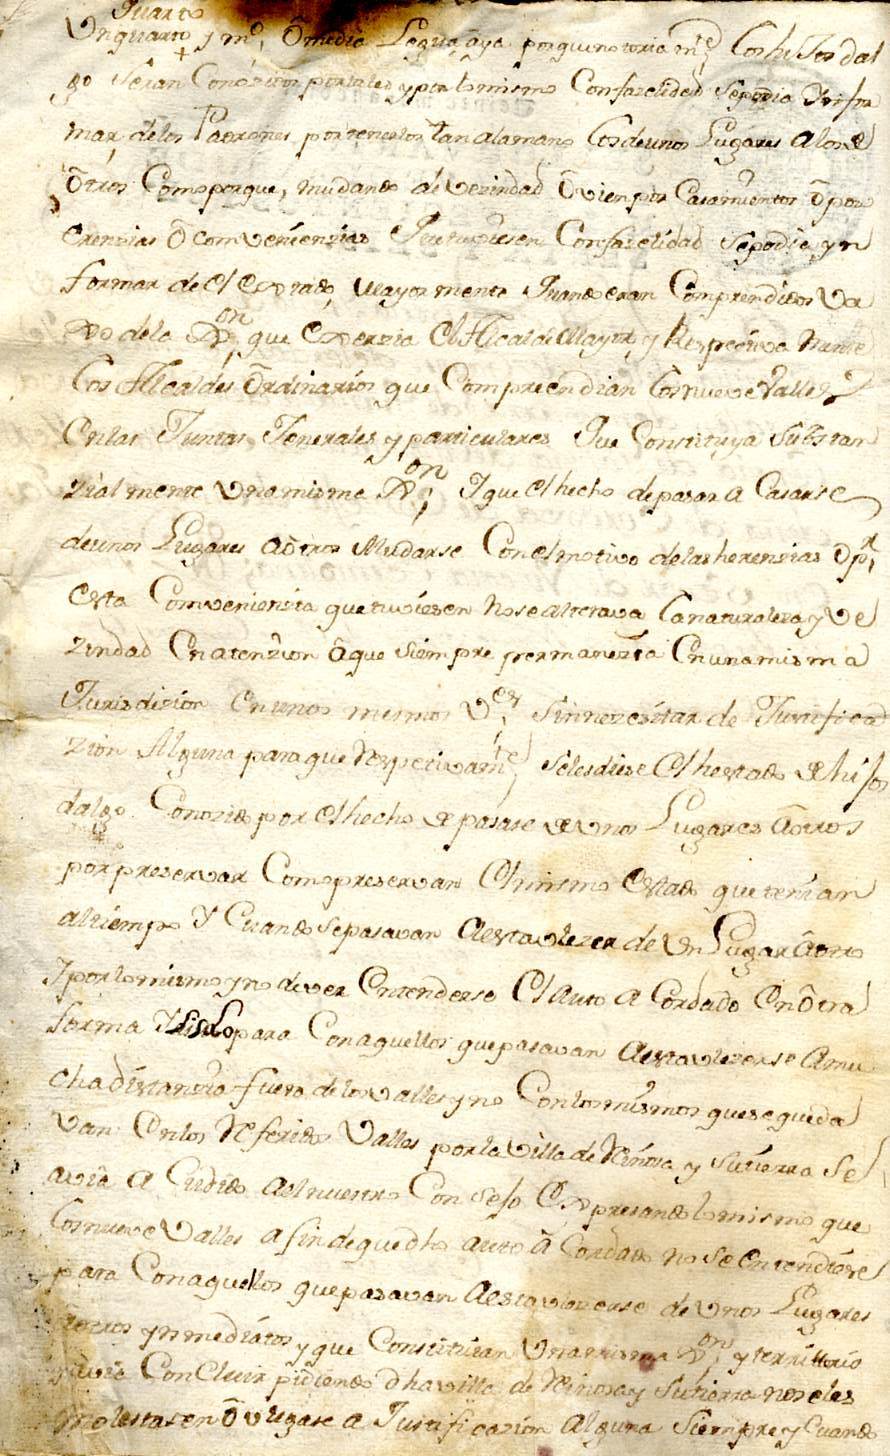 Quarto
Un quarto y m.º, ô media Legua, aya porque notoriam.te los hijos dal
go serian Conozidos portales, y por lo mismo Confazelidad sepodia Ynfor
mar, de los Padrones portenerlos tan alamano los deunos Lugares alos de
ôtros Como porque, mudando de vezindad ô vien por Casamientos ô por
erenzias ô comveniensias Quetuviesen Confazelidad sepodia, yn
formar de el estado, Mayormente Quando eran Comprendidos va
xo dela Jx.on que exerzia el Alcalde Mayor, y Respectiva mente
los Alcaldes ôrdinarios que Compreendian los nueve Valles
en las Juntas Jenerales y particulares Que Constituya Substan
zial mente una misma Jx.on Y que el hecho de pasar a Casarse
deunos Lugares aôtros Mudarse Con el motivo de las herensias ô p.r
esta Comveniensia que tuviesen no se alterava la naturaleza y ve
zindad en atenzion â que siempre permanezia en una misma
Jurisdizion en unos mismos v.es sin nezesitar de Justifica
zion Alguna para que Respetivam.te seles diese el hestado de hijos
dalgo Conozido por el hecho de pasarse de unos Lugares âotros
por preservar Como preservan el mismo estado que tenian
al tiempo Y Cuando se pasavan aestavlezer de un Lugar âotro
Y por lo mismo y no dever entenderse el auto a Cordado en ôtra
forma Y solo para Con aquellos que pasavan aestavlezerse amu
cha distanzia fuera de los valles y no Con los mismos que se queda
van en los Referidos Valles por la villa de Reinosa y su tierra se
avia a Cudido al nuestro Consejo expresando lo mismo que
los nueve Valles a fin de que dho auto â Cordado no se entendiese
para Con aquellos que pasavan aestavlezerse de unos Lugares
aotros ynmediatos y que Constituian una misma Jx.on y territorio
Concluir pidiendo dha villa de Reinosa y su tierra no seles
molestasen ô vligase a Justificazion alguna siempre y Cuando